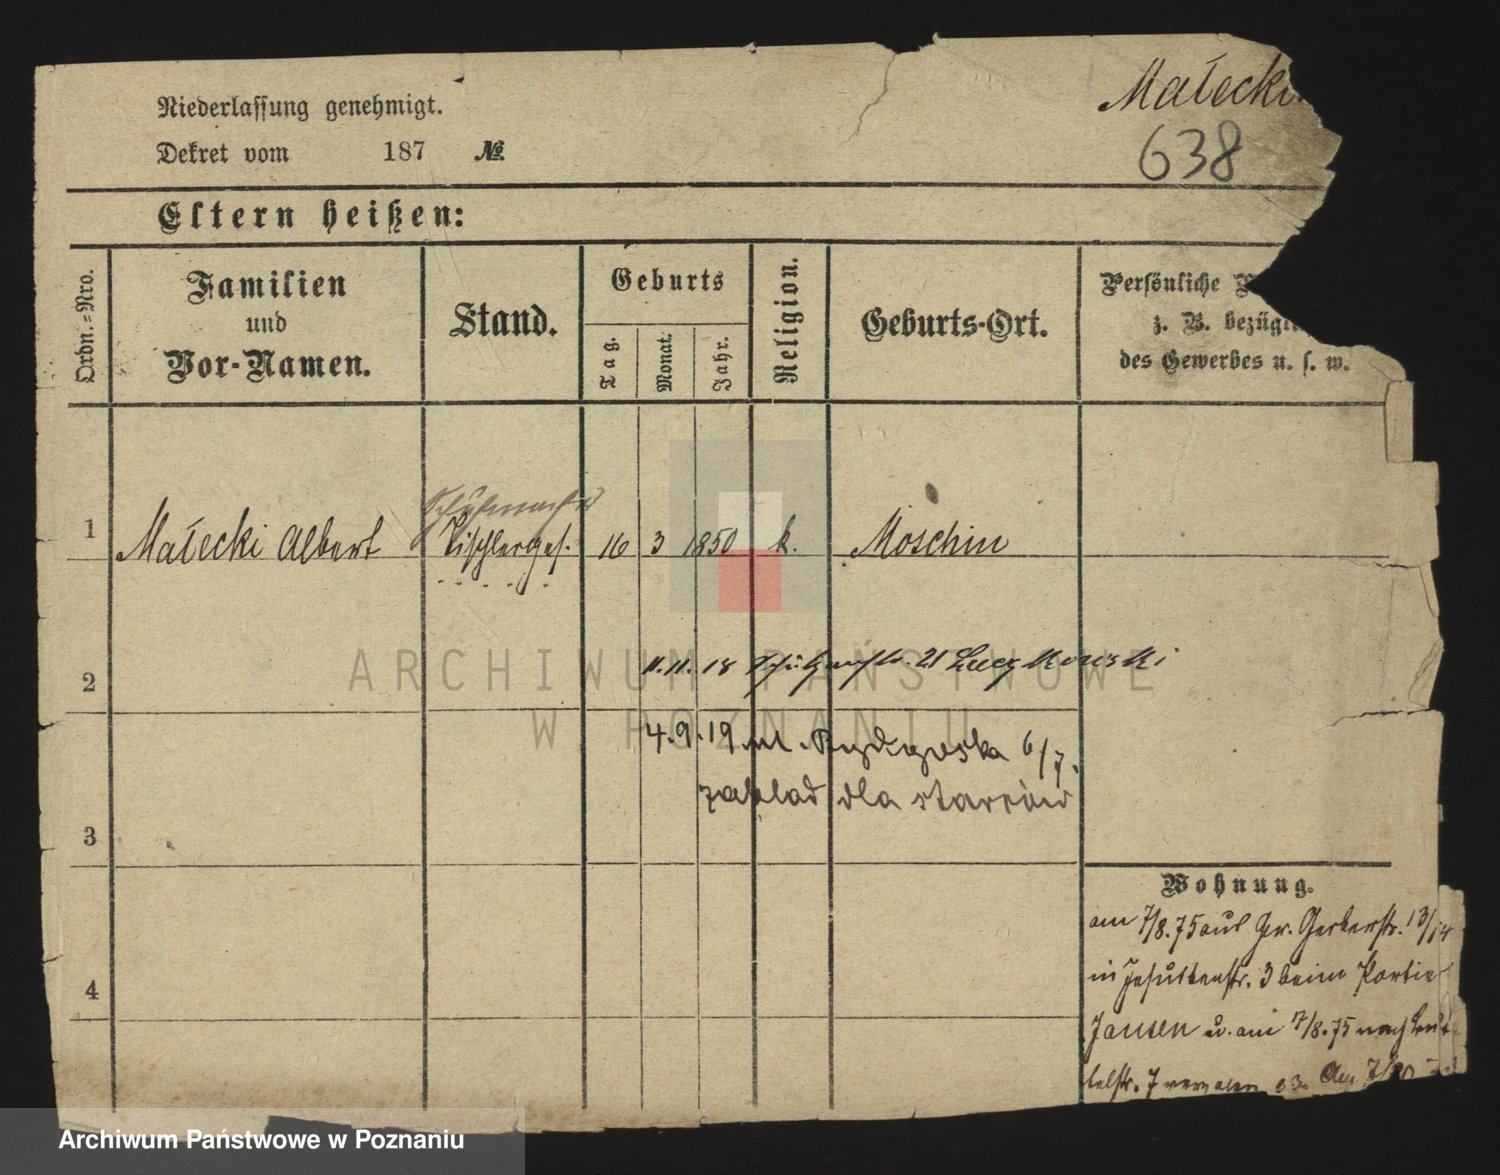 Małecki
638
Niederlassung genehmigt.
Dekret vom 187 №
Eltern heißen:
Ordn.-Nro.
Familien
und
Vor-Namen.
Stand.
Geburts
Tag.
Monat.
Jahr.
Religion.
Geburts-Ort.
Persönliche
z. B. bezügl
des Gewerbes u. s. w.
Schuhmacher
1 Małecki Albert Tischlerges. 16 3 1850 k. Moschin
2
11.11.18 Schützenstr. 21
4.9.19 ul. Bydgoska 6/7.
zakład dla starców
3
4
Wohnung.
am 7/8.75 aus Gr. Gerberstr. 13/14
in Jesuitenstr. 3 beim Portier
Jansen u. am 7/8.75 nach
telstr. 7
ARCHIWUM PAŃSTWOWE
W POZNANIU
Archiwum Państwowe w Poznaniu